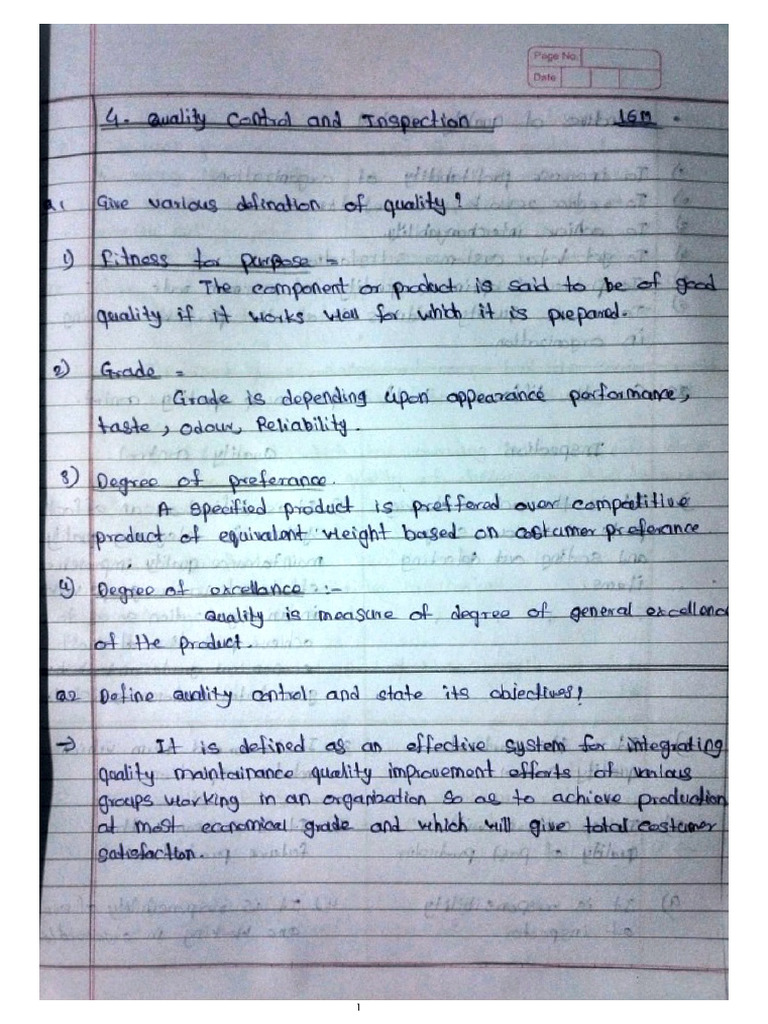 Page No.
Date
4. Quality Control and Inspection 16M.
Q.1 Give various defination of quality?
1) Fitness for purpose =
The component or product is said to be of good
quality if it works well for which it is prepared.
2) Grade =
Grade is depending upon appearance performance,
taste, odour, Reliability.
3) Degree of preferance.
A specified product is preffered over competitive
product of equivalent weight based on costumer preferance
4) Degree of excellance :-
Quality is measure of degree of general excellence
of the product.
Q.2 Define quality control and state its objectives?
→ It is defined as an effective system for integrating
quality maintainance quality improvement efforts of various
groups working in an organisation so as to achieve production
at most economical grade and which will give total costumer
satisfaction.
1